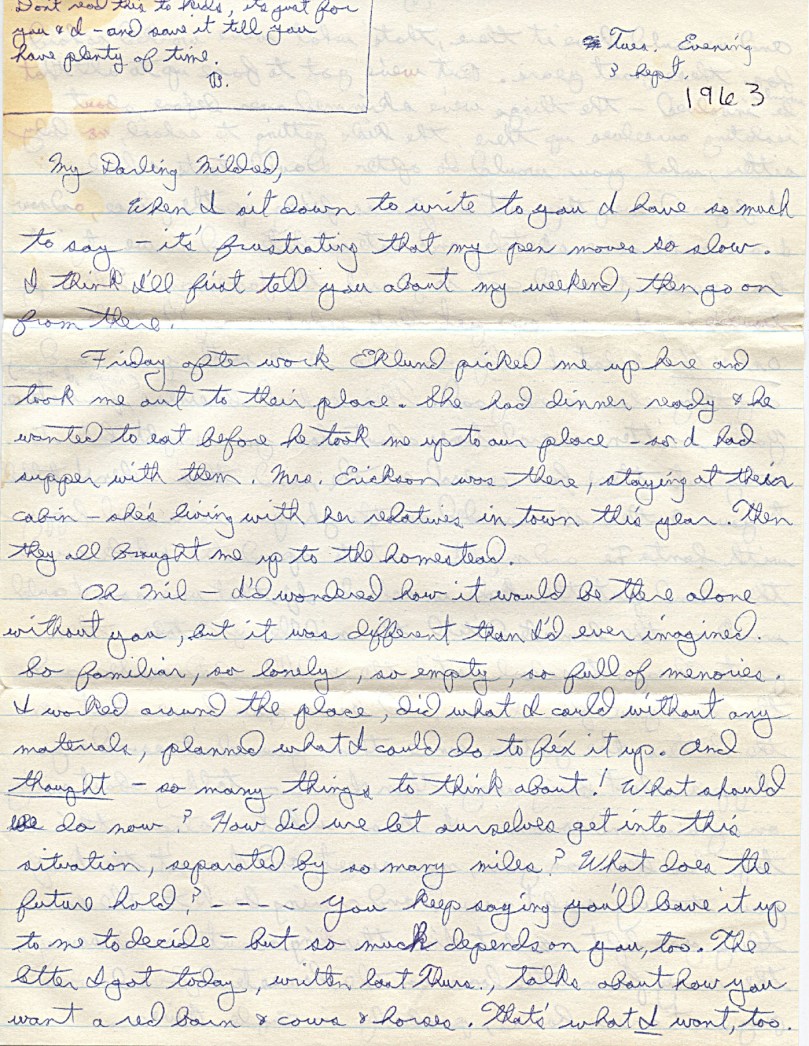 Dont read this to kids, it's just for
you & I - and save it till you
have plenty of time.
B.
Tues. Evening
3 Sept.
1963
My Darling Mildred,
When I sit down to write to you I have so much
to say - it's frustrating that my pen moves so slow.
I think I'll first tell you about my weekend, then go on
from there.
Friday after work Eklund picked me up here and
took me out to their place. She had dinner ready & he
wanted to eat before he took me up to our place - so I had
supper with them. Mrs. Erickson was there, staying at their
cabin - she's living with her relatives in town this year. Then
they all brought me up to the homestead.
Oh Mil - I'd wondered how it would be there alone
without you, but it was different than I'd ever imagined.
So familiar, so lonely, so empty, so full of memories.
I worked around the place, did what I could without any
materials, planned what I could do to fix it up. And
thought - so many things to think about! What should
we do now? How did we let ourselves get into this
situation, separated by so many miles? What does the
future hold? - - - - You keep saying you'll leave it up
to me to decide - but so much depends on you, too. The
letter I got today, written last Thurs., talks about how you
want a red barn & cows & horses. That's what I want, too.